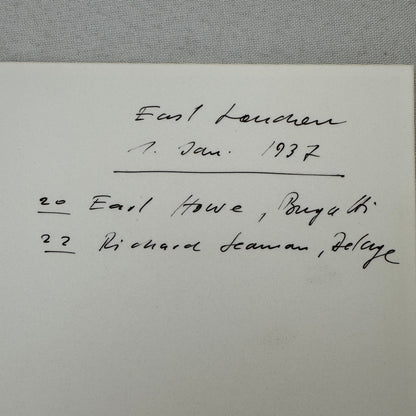 East London
1. Jan. 1937
20 Earl Howe, Bugatti
22 Richard Seaman, Delage